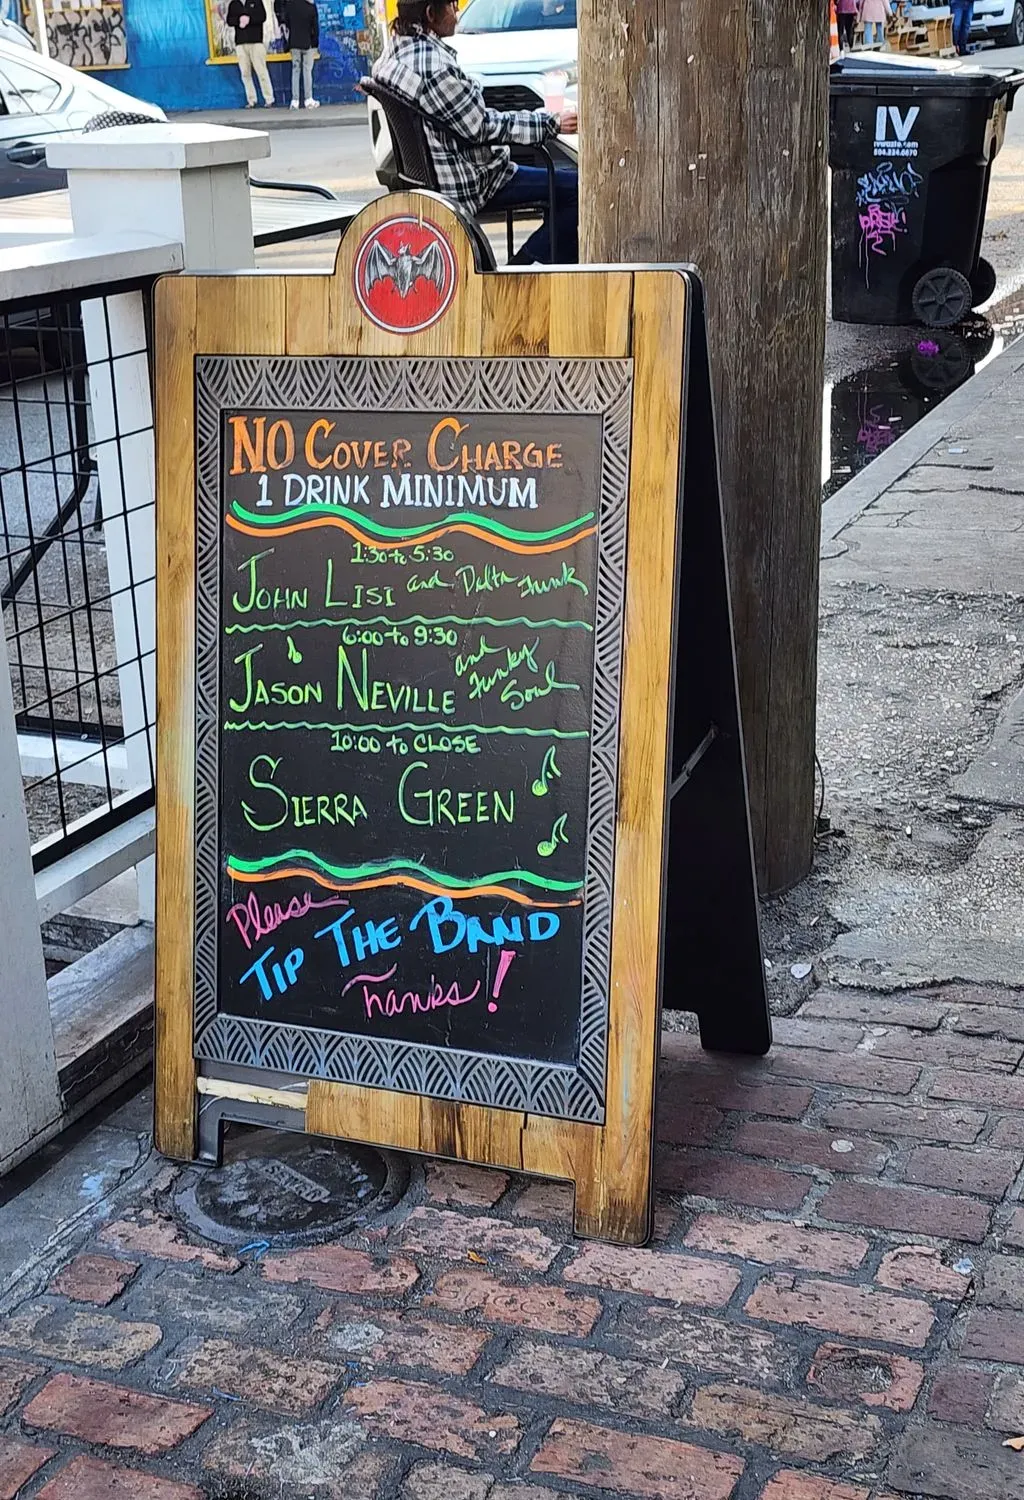 IV
NO COVER CHARGE
1 DRINK MINIMUM
1:30 to 5:30
JOHN LISI and Delta Funk
6:00 to 9:30
JASON NEVILLE and Funky Soul
10:00 to CLOSE
SIERRA GREEN
Please
TIP THE BAND
Thanks!